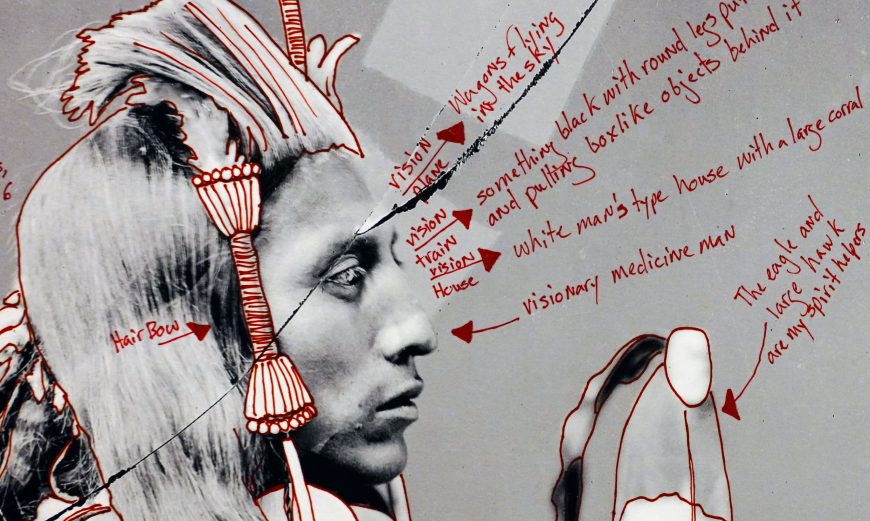 6
vision
plane
Wagons flying
in the sky
vision
train
something black with round legs
and pulling boxlike objects behind it
vision
House
white man's type house with a large corral
visionary medicine man
Hair Bow
The eagle and
large hawk
are my spirit helpers